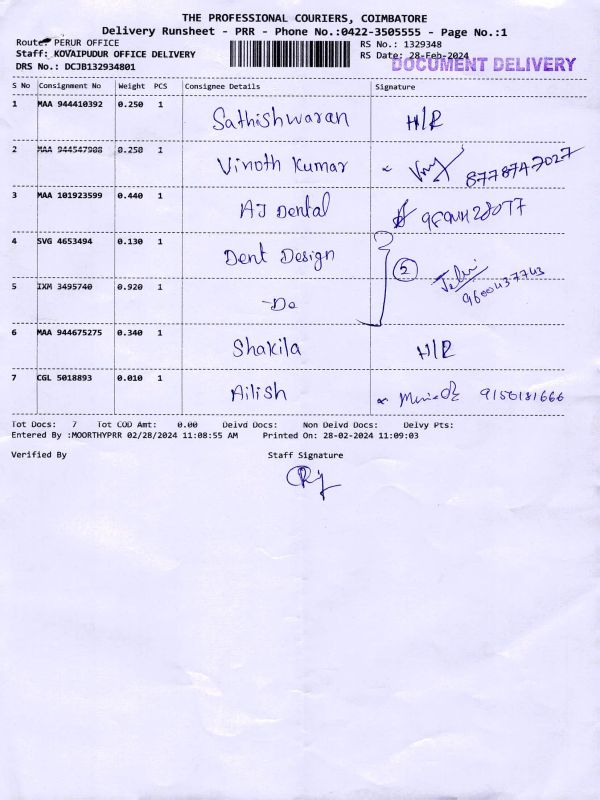 THE PROFESSIONAL COURIERS, COIMBATORE
Delivery Runsheet - PRR - Phone No.:0422-3505555 - Page No.:1
Route: PERUR OFFICE RS No.: 1329348
Staff: KOVAIPUDUR OFFICE DELIVERY RS Date: 28-Feb-2024
DOCUMENT DELIVERY
DRS No.: DCJB132934801
S No Consignment No Weight PCS Consignee Details Signature
1 MAA 944410392 0.250 1 Sathishwaran H/R
2 MAA 944547908 0.250 1 Vinoth Kumar 8778747027
3 MAA 101923599 0.440 1 AJ Dental
4 SVG 4653494 0.130 1 Dent Design
2 9600437743
5 IXM 3495740 0.920 1 -Do
6 MAA 944675275 0.340 1 Shakila H/R
7 CGL 5018893 0.010 1 Ailish 9150181666
Tot Docs: 7 Tot COD Amt: 0.00 Delvd Docs: Non Delvd Docs: Delvy Pts:
Entered By :MOORTHYPRR 02/28/2024 11:08:55 AM Printed On: 28-02-2024 11:09:03
Verified By Staff Signature